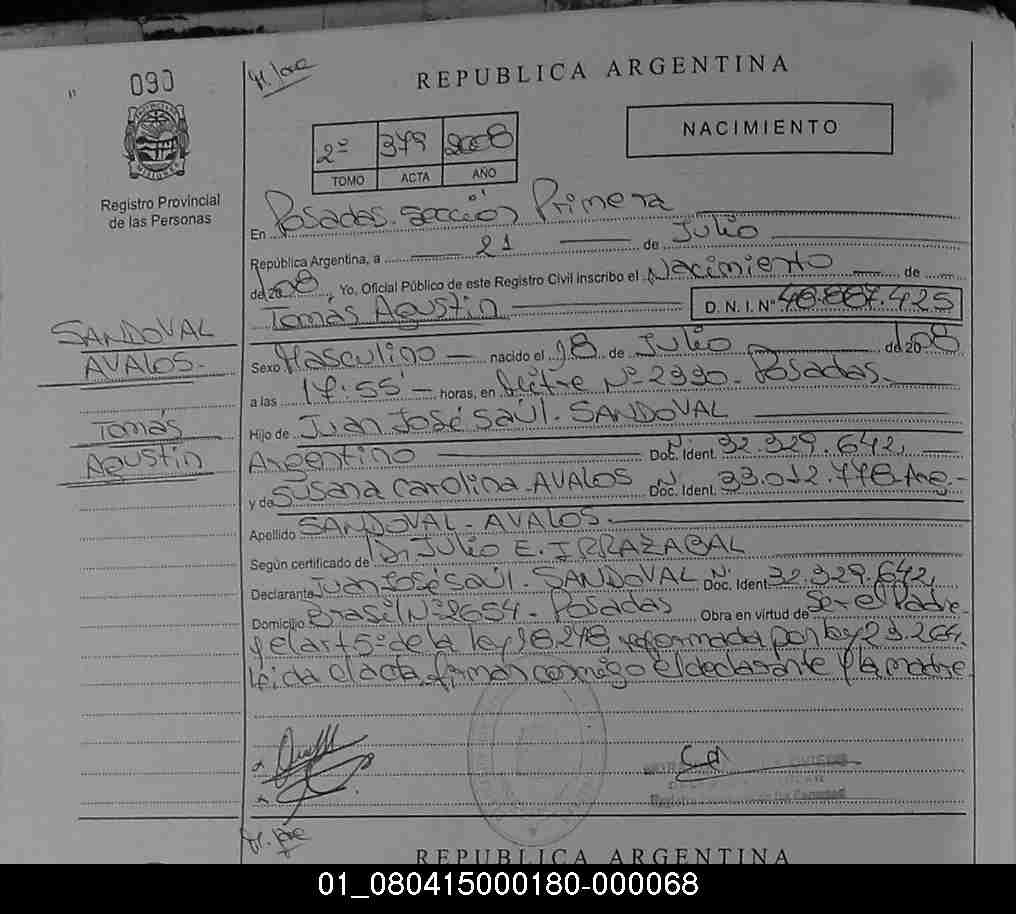 090
REPUBLICA ARGENTINA
NACIMIENTO
2º 379 2008
TOMO ACTA AÑO
Registro Provincial
de las Personas
En Posadas. sección Primera
República Argentina, a 21 de Julio
de 2008, Yo, Oficial Público de este Registro Civil inscribo el Nacimiento de
Tomás Agustín D.N.I. Nº 48.867.425
SANDOVAL
AVALOS.-
Tomás
Agustín
Sexo Masculino nacido el 18 de Julio de 2008
a las 17:55 horas, en Nº 2990. Posadas
Hijo de Juan José Saúl. SANDOVAL
Argentino Doc. Ident. N. 32.329.642,
y de Susana Carolina. AVALOS Doc. Ident. N. 33.012.778 Arg.-
Apellido SANDOVAL - AVALOS.
Según certificado de Dr Julio E. IRRAZABAL
Declarante Juan José Saúl. SANDOVAL Doc. Ident. N. 32.329.642,
Domicilio Brasil Nº 2654. Posadas Obra en virtud de Ser el Padre
y el art 5º de la ley 18.248, reformada por ley 23.264.
Leída el acta, firman conmigo el declarante y la madre.
REPUBLICA ARGENTINA
01_080415000180-000068